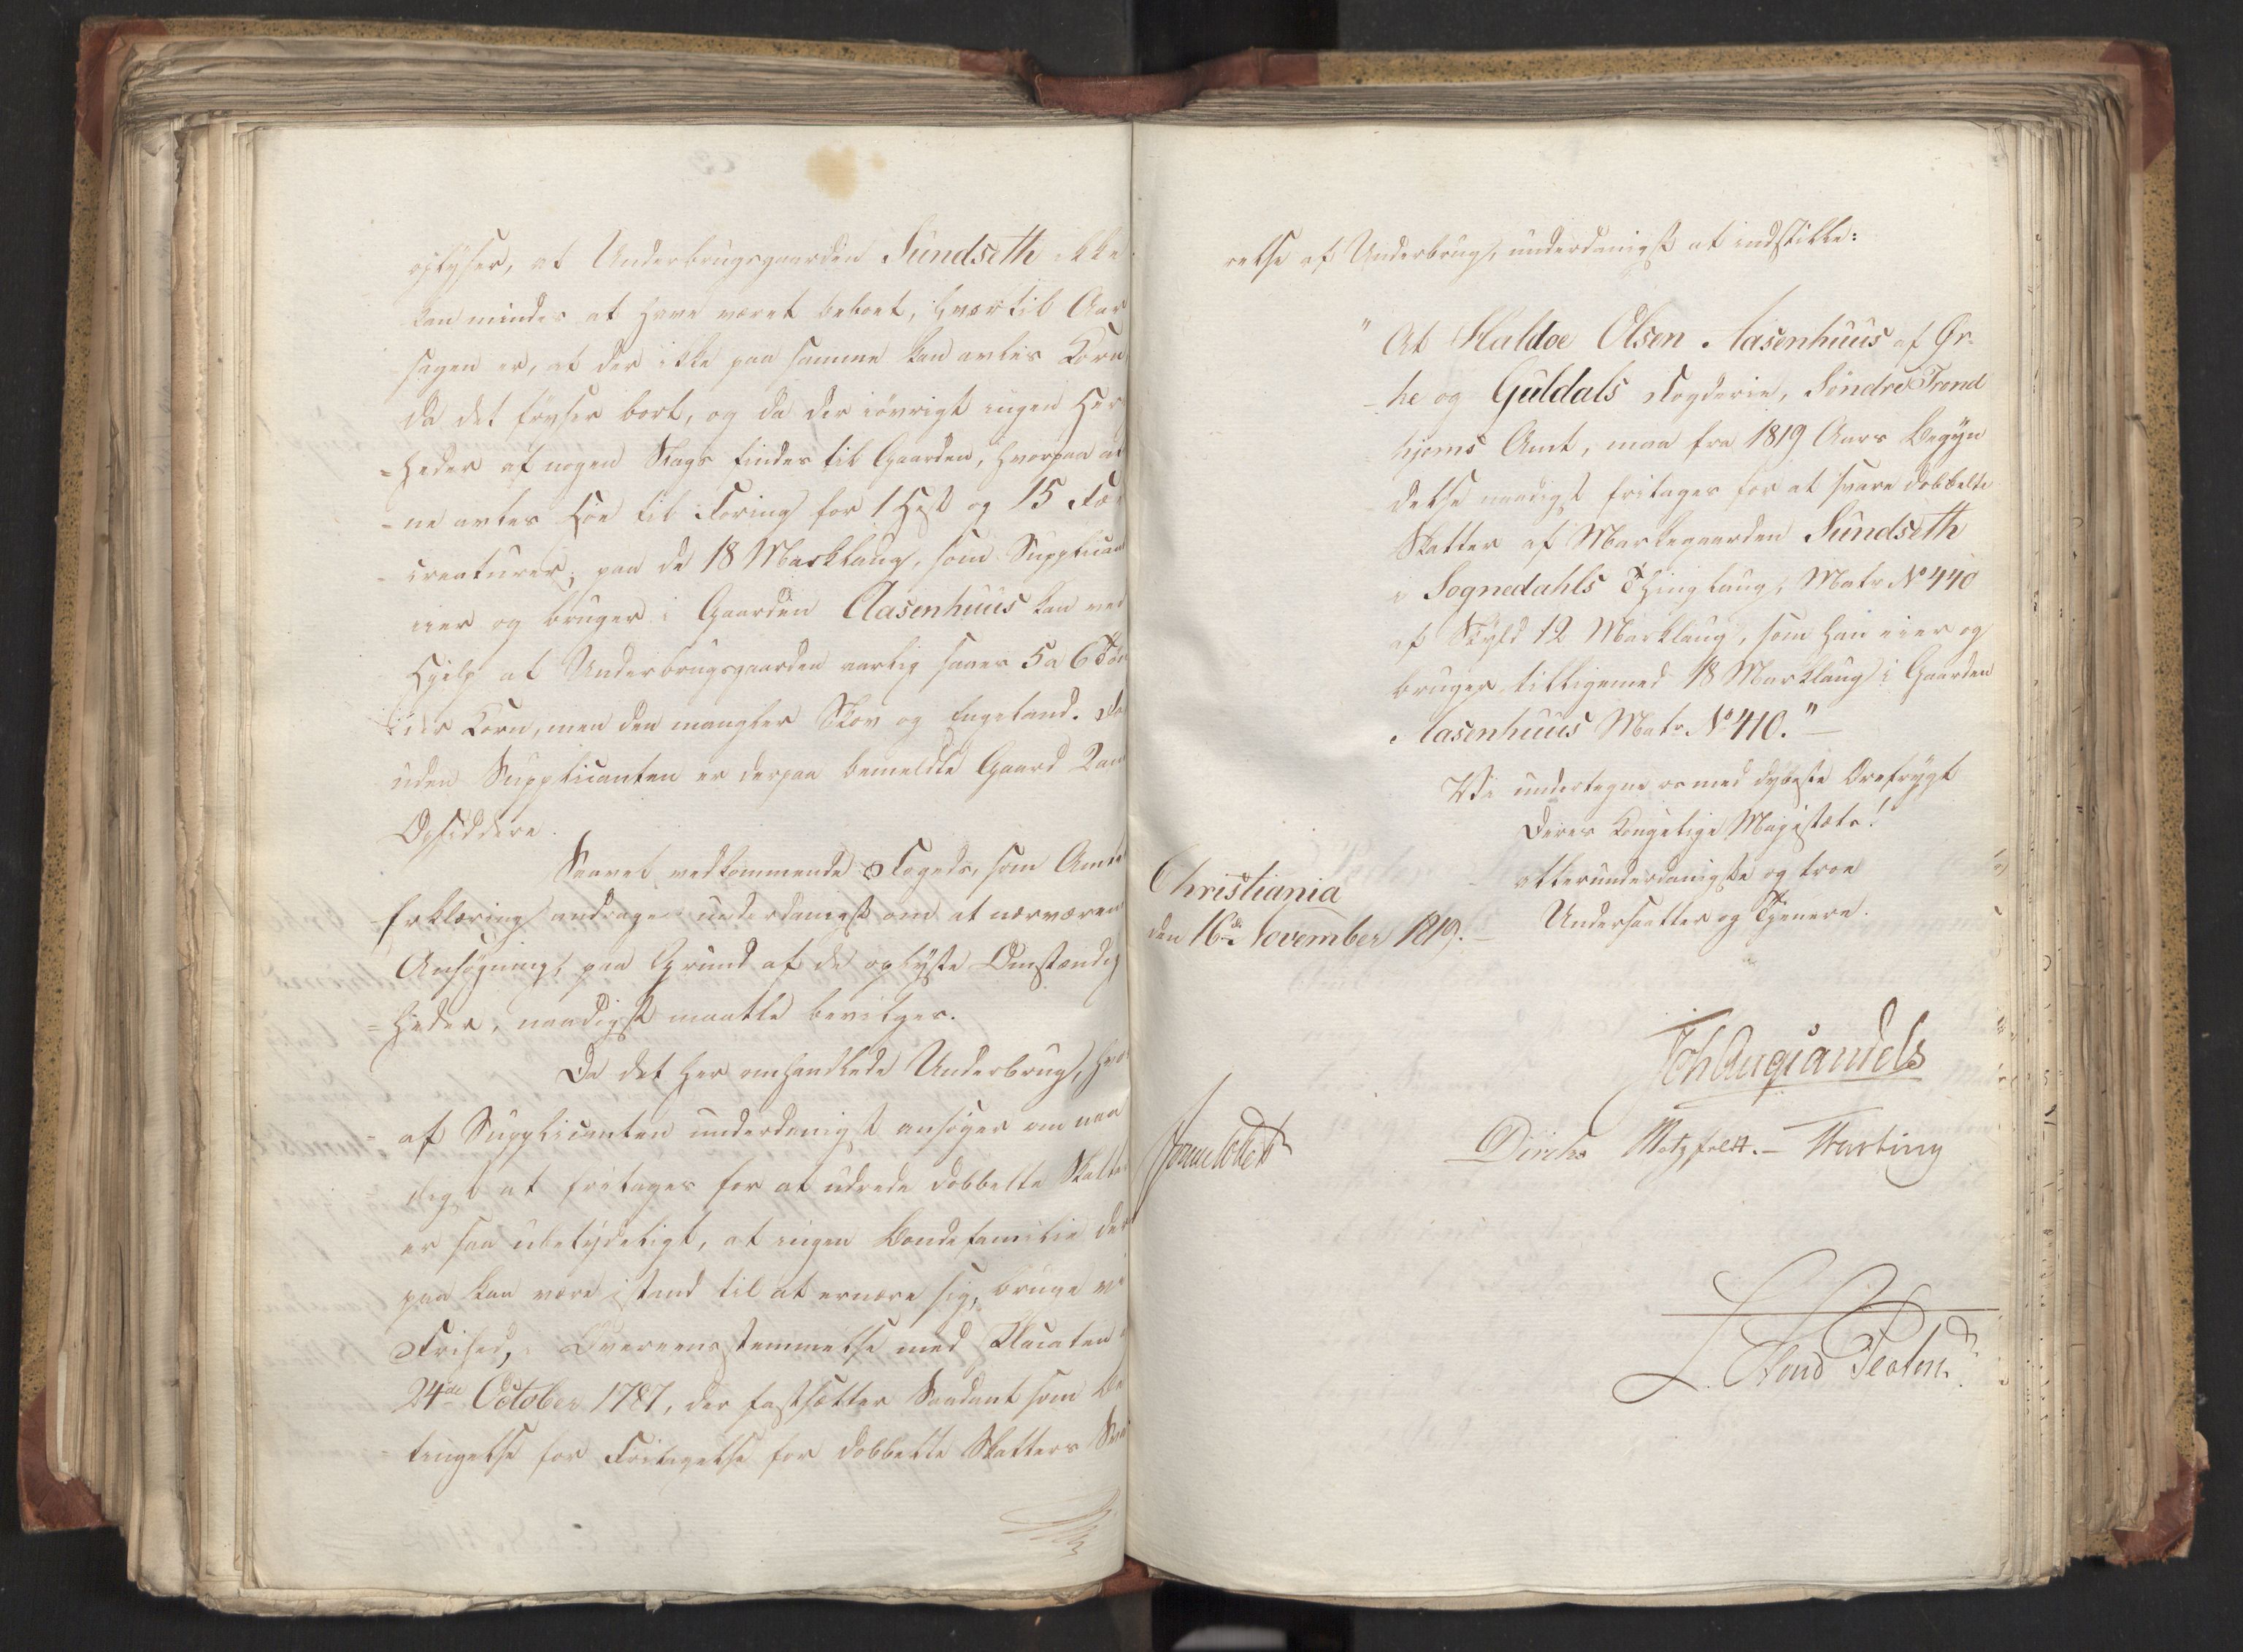 oplyser, at Underbrugsgaarden Sundseth ikke
kan mindes at have været beboet, hvortil Aar
sagen er, at der ikke paa samme kan avles Korn
da det fryser bort, og da der iøvrigt ingen Her
=heder af nogen Slags findes til Gaarden, hvorpaa al
=ne avles Høe til Foring for 1 Hest og 15 Fæ
=creaturer; paa de 18 Marklaug, som Supplican
eier og bruger i Gaarden Aasenhuus kan ved
Hjelp af Underbrugsgaarden aarlig saaes 5 a 6 Tøn
der Korn, men den mangler Skov og Engeland. For
uden Supplicanten er derpaa bemeldte Gaard 2 an
Opsiddere.
Saavel vedkommende Fogeds, som Amts
Erklæring andrager underdanigst om at nærværen
Ansøgning, paa Grund af de oplyste Omstændig
=heder, naadigst maatte bevilges.
Da det her omhandlede Underbrug, hvor
af Supplicanten underdanigst ansøger om naa
digst at fritages for at udrede dobbelte Skatter
er saa ubetydeligt, at ingen Bondefamilie der
paa kan være istand til at ernære sig, bruge vi
Frihed, i Overeensstemmelse med Placaten
24de October 1787, der fastsætter Saadant som Be
tingelse for Fritagelse for dobbelte Skatters Sva
relse af Underbrug, underdanigst at indstille:
"At Haldoe Olsen Aasenhuus af Ør-
-ke og Guldals Fogderie, Søndre Trond
hjems Amt, maa fra 1819 Aars Begyn
delse naadigst fritages for at svare dobbelte
Skatter af Markegaarden Sundseth
i Sognedahls Thinglaug, Matr No 440
af Skyld 12 Marklaug, som han eier og
bruger tilligemed 18 Marklaug i Gaarden
Aasenhuus Matr. No 410."
Vi undertegne os med dybeste Ærefrygt
Deres Kongelige Majestæts!
allerunderdanigste og troe
Undersaatter og Tjenere.
Christiania
den 16de November 1819.
Diriks Motzfeldt. Krog